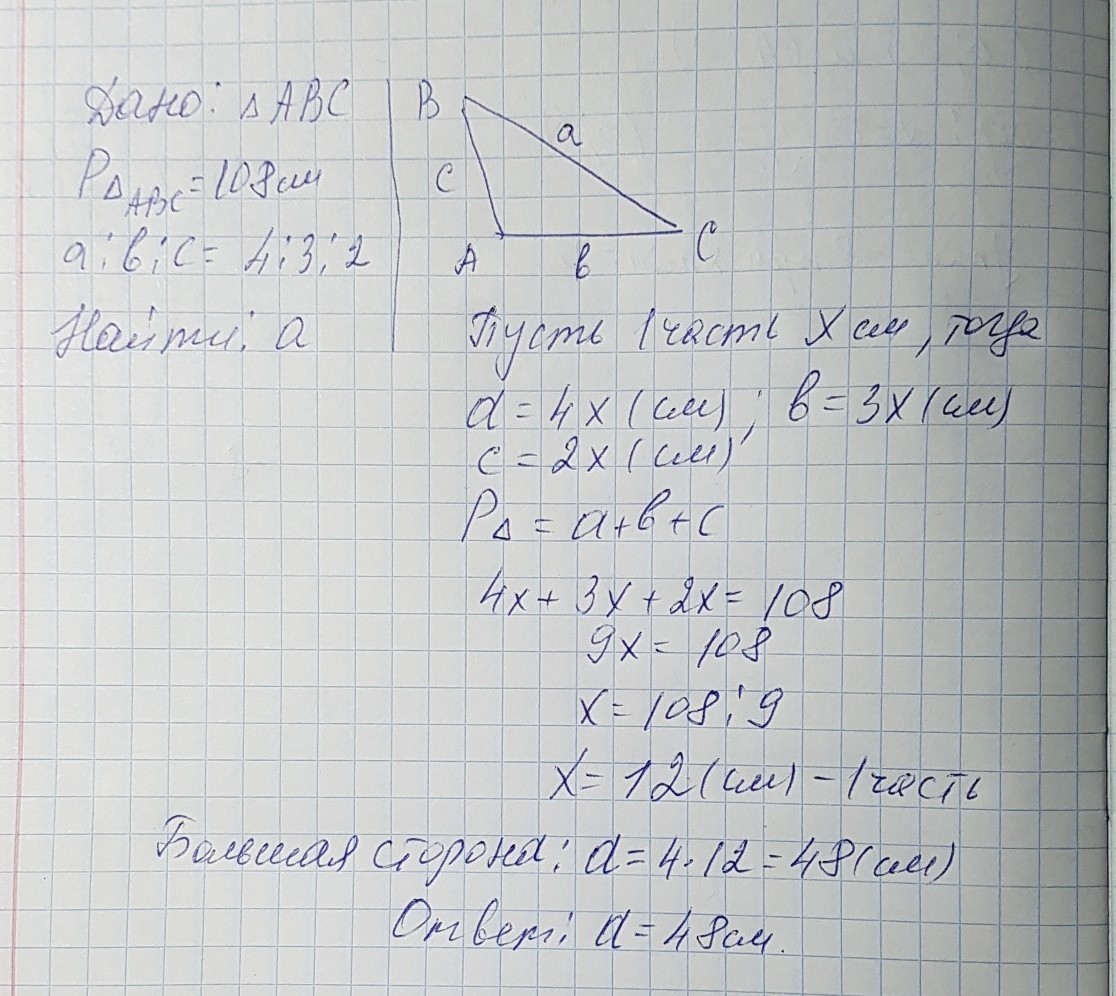 Дано: △ABC
P△ABC = 108 см
a : b : c = 4 : 3 : 2
Найти: a
B
a
c
A
b
C
Пусть 1 часть x см, тогда
a = 4x (см); b = 3x (см)
c = 2x (см)
P△ = a + b + c
4x + 3x + 2x = 108
9x = 108
x = 108 : 9
x = 12 (см) - 1 часть
Большая сторона: a = 4 · 12 = 48 (см)
Ответ: a = 48 см.